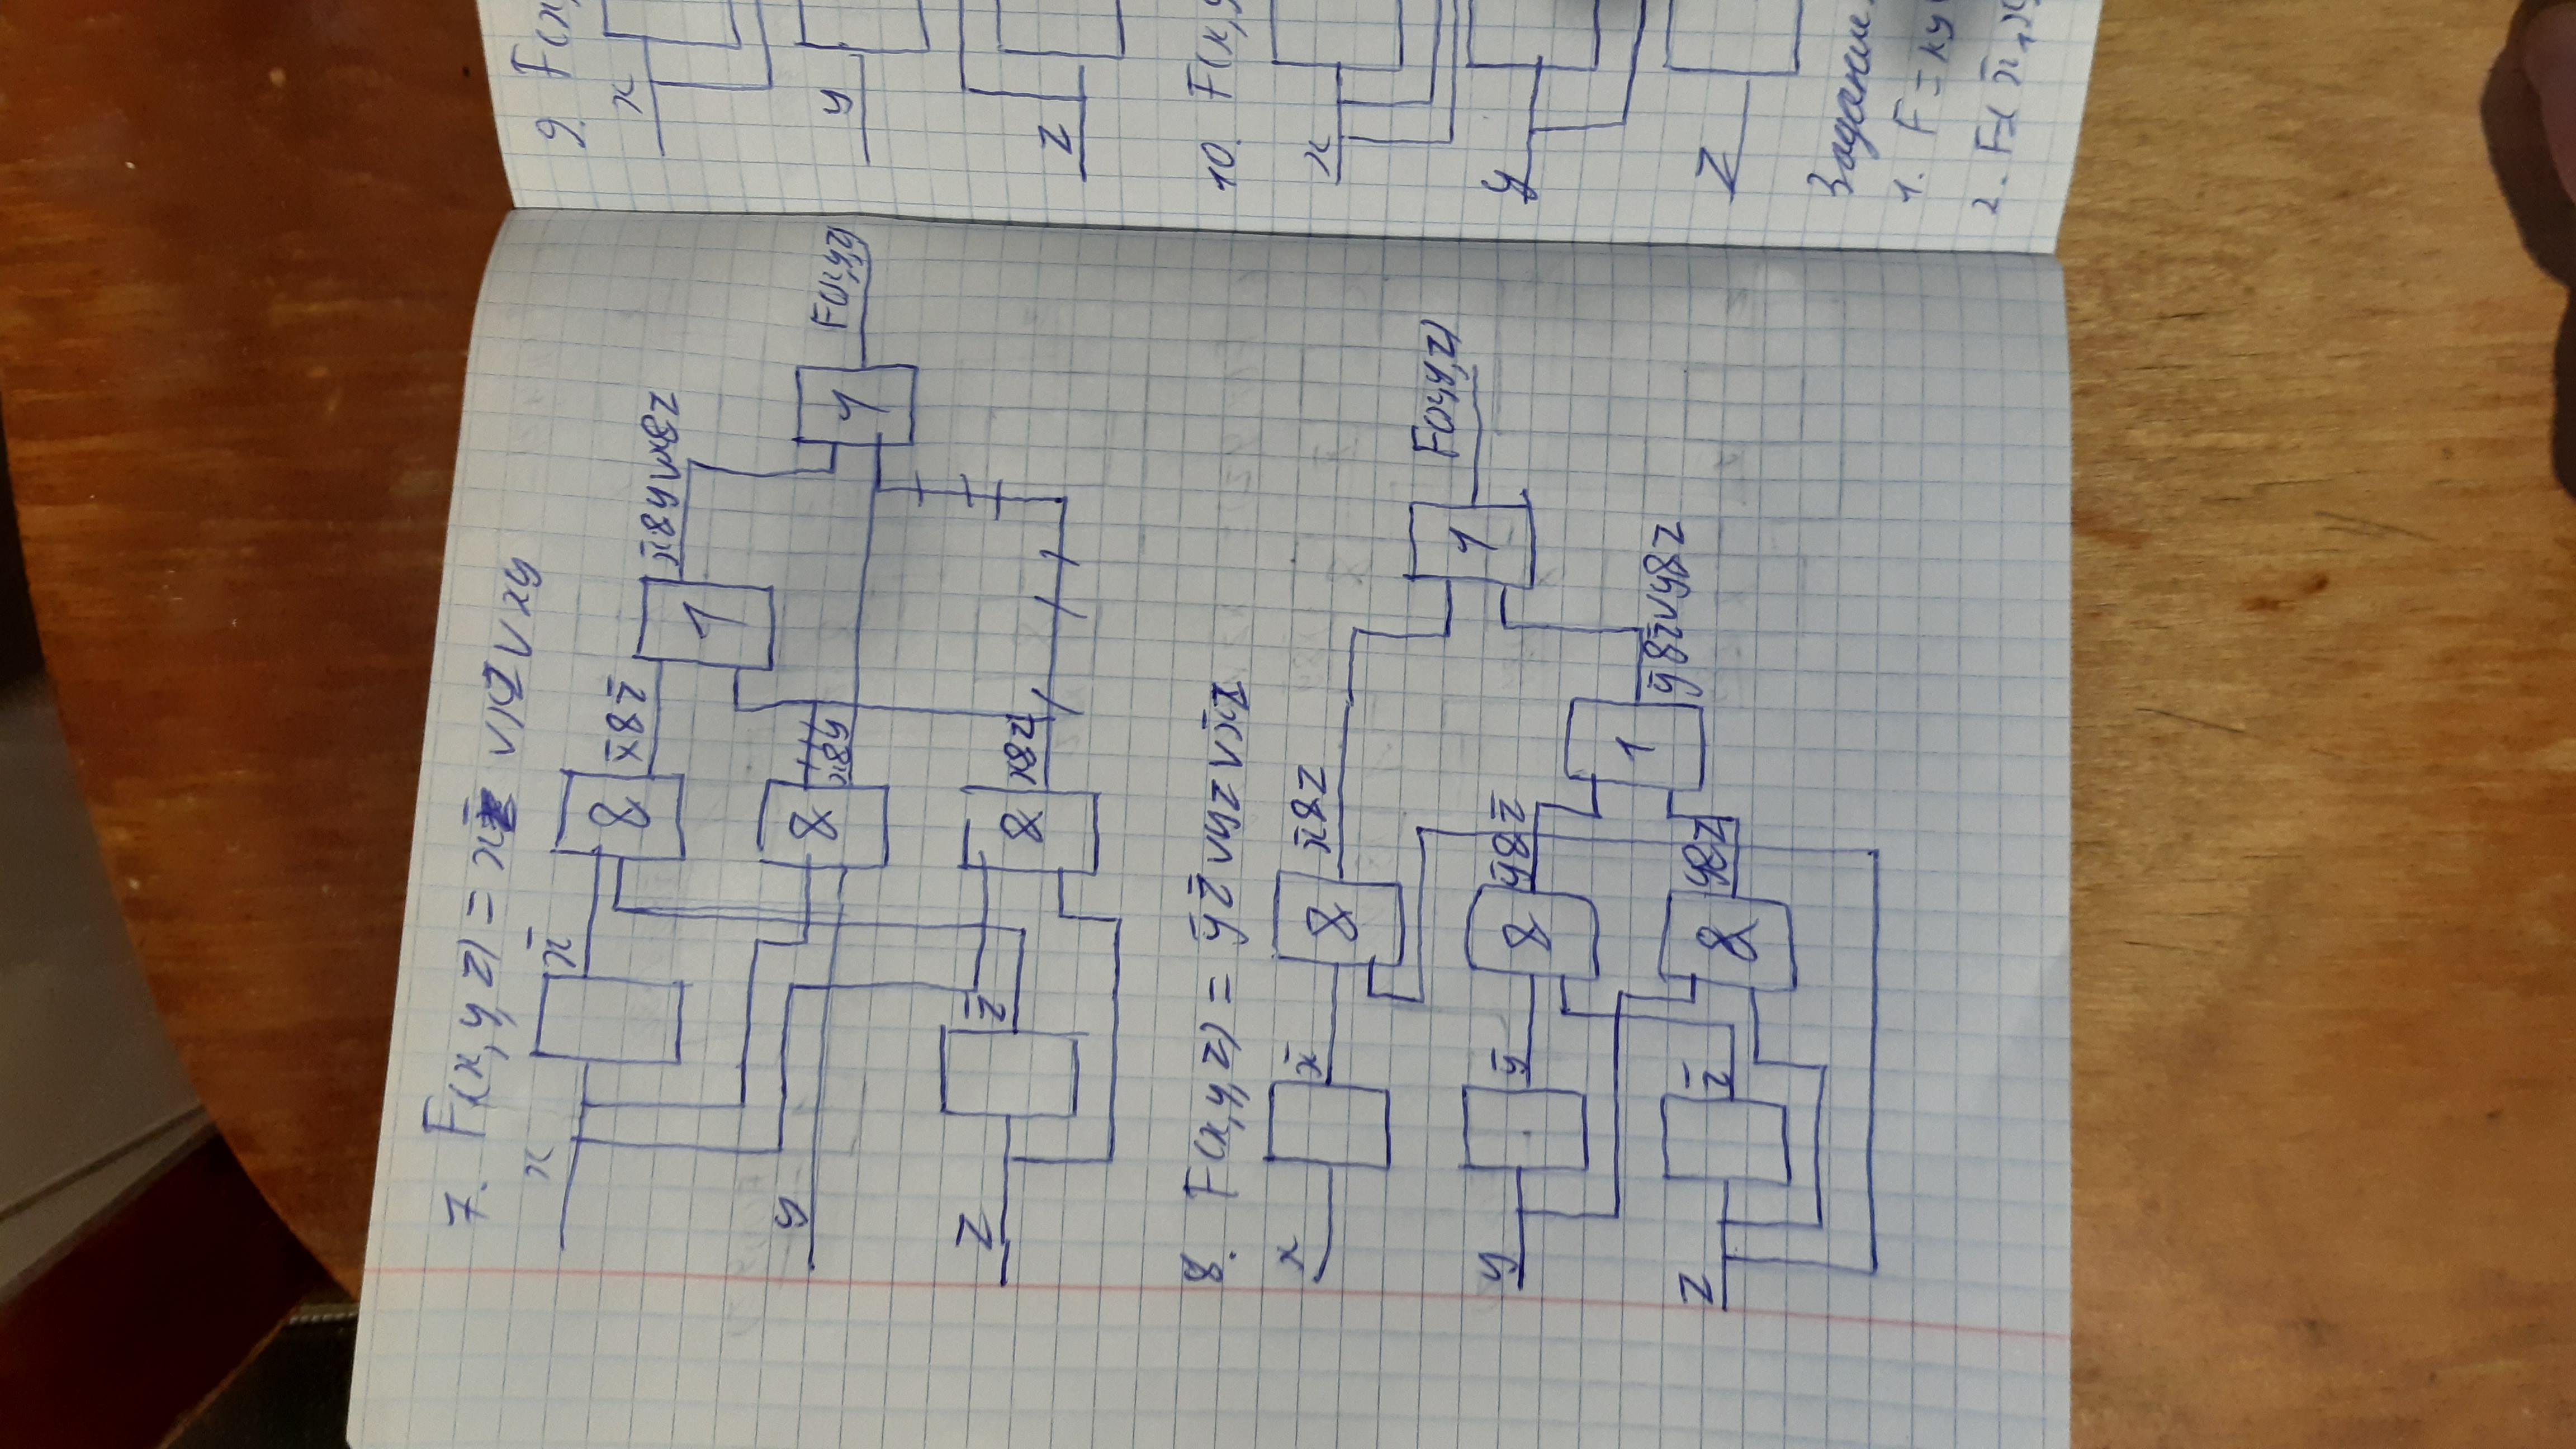 7. F(x, y, z) = x̄z̄ ∨ xz ∨ xy
x
x̄
&
x̄&z̄
1
x̄&y∨x&z
y
&
x&y
1
F(x,y,z)
z
z̄
&
x&z
8. F(x,y,z) = ȳz̄ ∨ yz ∨ x̄z
x
x̄
&
x̄&z
1
F(x,y,z)
y
ȳ
&
ȳ&z̄
1
ȳ&z̄∨y&z
z
z̄
&
y&z
9. F(x,
x
y
z
10. F(x,y
x
y
z
Задание
1. F = xy
2. F=